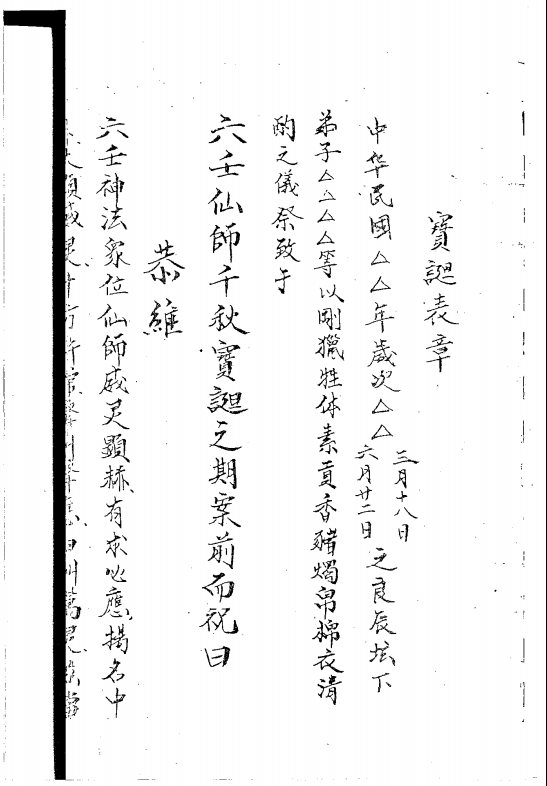 寶誕表章
中华民國△△年歲次△△三月十八日六月廿二日之良辰坛下
弟子△△△△等以剛獵牲体素貢香豬燭帛棉衣清
酌之儀祭致于
六壬仙師千秋寶誕之期案前而祝曰
恭維
六壬神法众位仙師威灵顯赫有求必應揚名中
大顯威灵